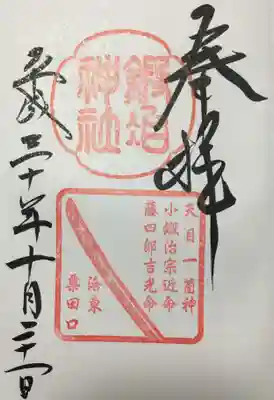 奉拝
鍛冶神社
天目一箇神
小鍛治宗近命
藤四郎吉光命
洛東
粟田口
平成三十年十月二十一日